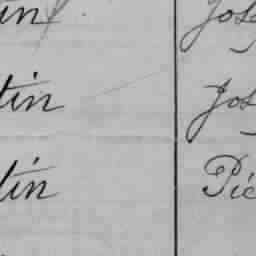 in Jos
tin Jos
tin Pie